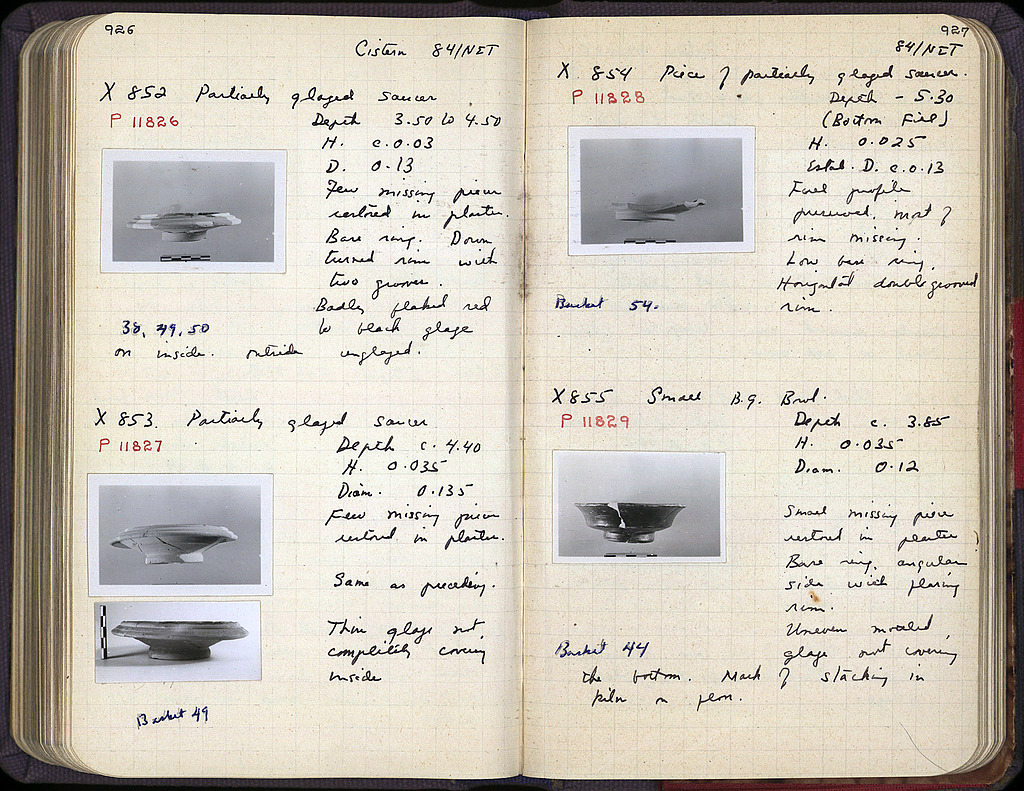 926
Cistern 84/NET
X 852 Partially glazed saucer
P 11826
Depth 3.50 to 4.50
H. c. 0.03
D. 0.13
Few missing pieces
restored in plaster.
Base ring. Down
turned rim with
two grooves.
Badly flaked red
38, 49, 50
to black glaze
on inside. outside unglazed.
X 853. Partially glazed saucer
P 11827
Depth c. 4.40
H. 0.035
Diam. 0.135
Few missing pieces
restored in plaster.
Same as preceding.
Thin glaze not
completely covering
inside
Basket 49
927
84/NET
X 854 Piece of partially glazed saucer.
P 11828
Depth - 5.30
(Bottom Fill)
H. 0.025
Estd. D. c. 0.13
Full profile
preserved, most of
rim missing.
Low base ring.
Horizontal double grooved
Basket 54.
rim.
X 855 Small B.G. Bowl.
P 11829
Depth c. 3.85
H. 0.035
Diam. 0.12
Small missing piece
restored in plaster
Base ring, angular
side with flaring
rim.
Uneven mottled
Basket 44
glaze not covering
the bottom. Mark of stacking in
kiln on floor.